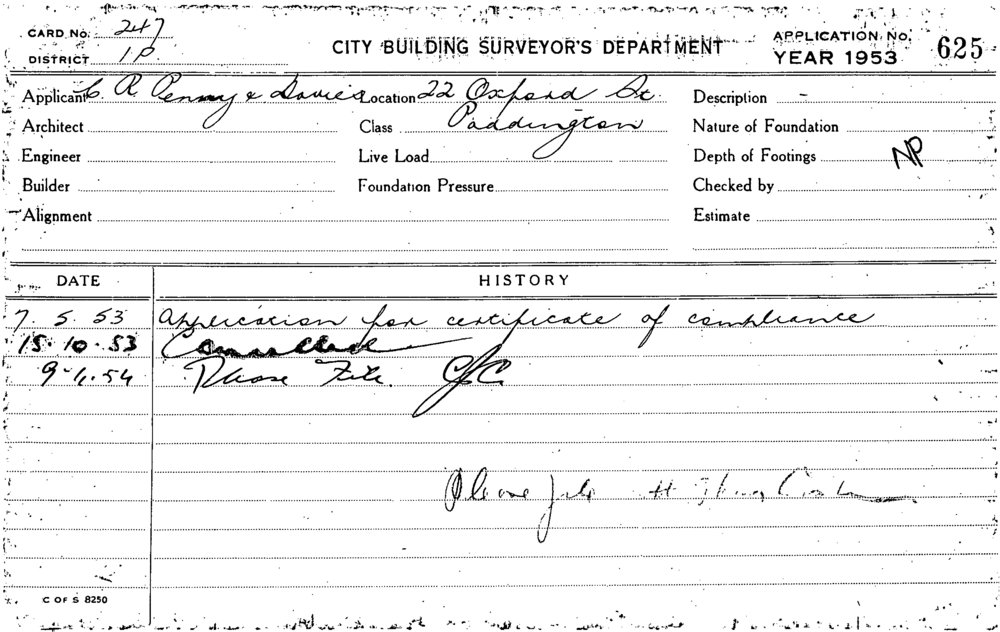 CARD No. 247
DISTRICT 1P
CITY BUILDING SURVEYOR'S DEPARTMENT
APPLICATION No. 625
YEAR 1953
Applicant C. R. Penny & Davies Location 22 Oxford St. Description -
Architect Class Paddington Nature of Foundation
Engineer Live Load Depth of Footings NP
Builder Foundation Pressure Checked by
Alignment Estimate
DATE HISTORY
7. 5. 53 Application for certificate of compliance
15. 10. 53 Cancelled
9-4.54 Please File. GC
Please file
C OF S 8250